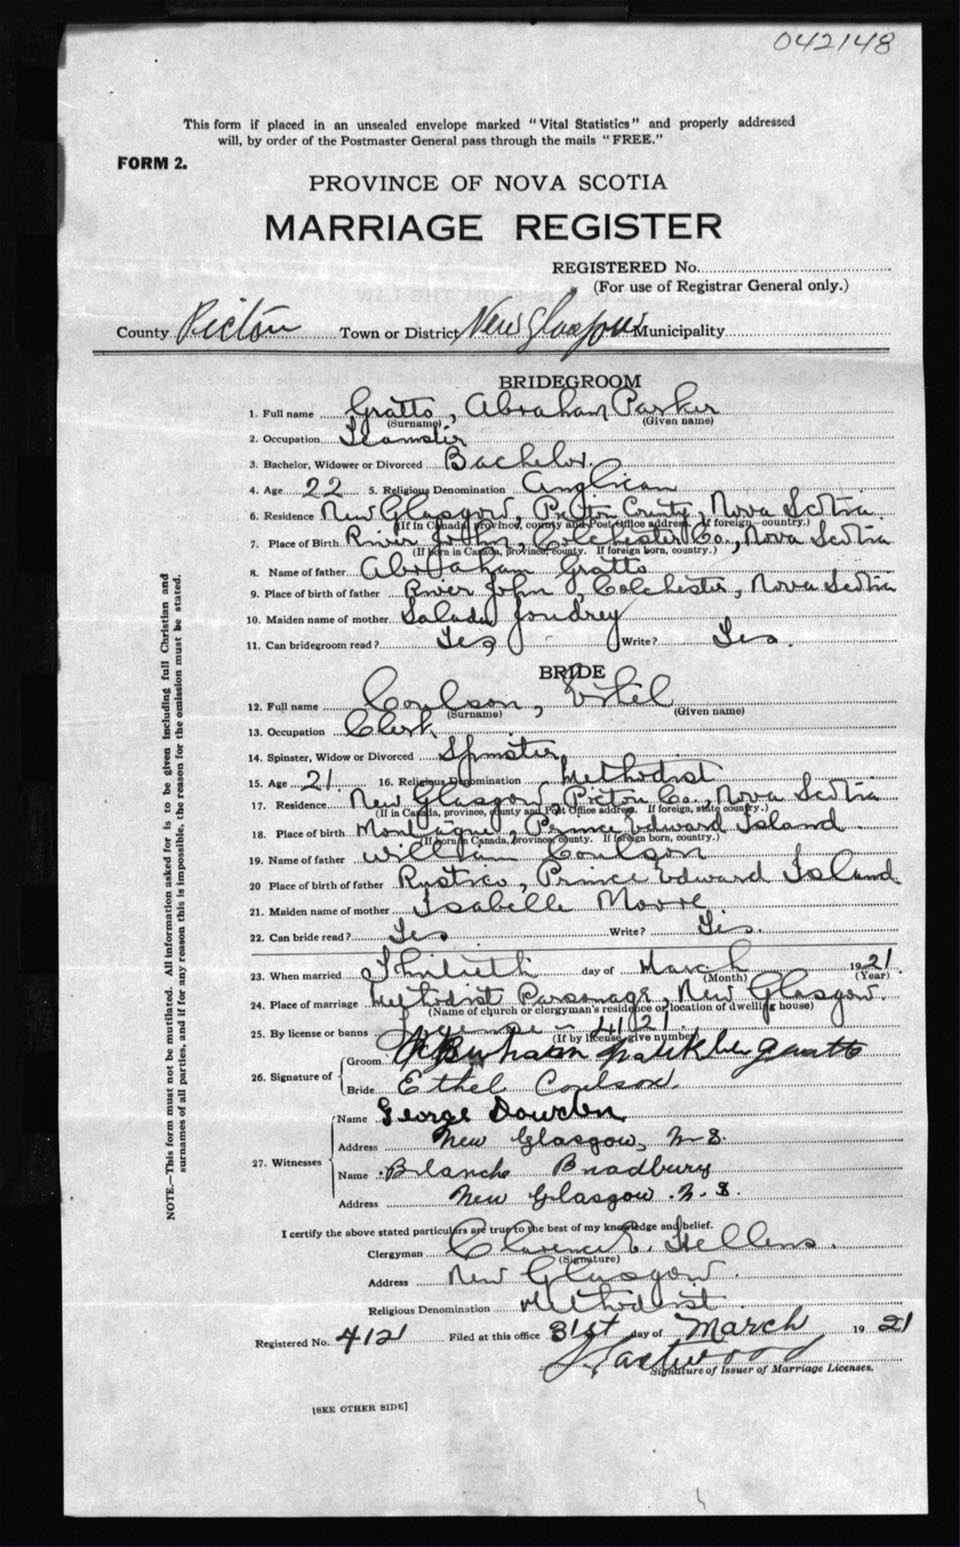 042148
This form if placed in an unsealed envelope marked "Vital Statistics" and properly addressed
will, by order of the Postmaster General pass through the mails "FREE."
FORM 2.
PROVINCE OF NOVA SCOTIA
MARRIAGE REGISTER
REGISTERED No.
(For use of Registrar General only.)
County Pictou Town or District New Glasgow Municipality
BRIDEGROOM
1. Full name Gratto, Abraham Parker
(Surname) (Given name)
2. Occupation Teamster
3. Bachelor, Widower or Divorced Bachelor.
4. Age 22 5. Religious Denomination Anglican
6. Residence New Glasgow, Pictou County, Nova Scotia.
(If in Canada, province, county and Post Office address. If foreign—country.)
7. Place of Birth River John, Colchester Co., Nova Scotia
(If born in Canada, province, county. If foreign born, country.)
8. Name of father Abraham Gratto
9. Place of birth of father River John, Colchester, Nova Scotia
10. Maiden name of mother Joudrey
11. Can bridegroom read? Yes Write? Yes.
BRIDE
12. Full name Coulson, Ethel
(Surname) (Given name)
13. Occupation Clerk
14. Spinster, Widow or Divorced Spinster
15. Age 21. 16. Religious Denomination Methodist
17. Residence New Glasgow, Pictou Co., Nova Scotia
(If in Canada, province, county and Post Office address. If foreign, state country.)
18. Place of birth Montague, Prince Edward Island.
(If born in Canada, province, county. If foreign born, country.)
19. Name of father William Coulson
20 Place of birth of father Rustico, Prince Edward Island.
21. Maiden name of mother Isabelle Moore
22. Can bride read? Yes Write? Yes.
23. When married Thirtieth day of March 1921.
(Month) (Year)
24. Place of marriage Methodist Parsonage, New Glasgow.
(Name of church or clergyman's residence or location of dwelling house)
25. By license or banns 4121.
(If by license, give number)
26. Signature of
Groom Gratto
Bride Ethel Coulson.
27. Witnesses
Name George Dowden
Address New Glasgow, N.S.
Name Blanche Bradbury
Address New Glasgow. N.S.
I certify the above stated particulars are true to the best of my knowledge and belief.
Clergyman Clarence E. Hellens.
(Signature)
Address New Glasgow.
Religious Denomination Methodist.
Registered No. 4121 Filed at this office 31st day of March 1921
Eastwood
Signature of Issuer of Marriage Licenses.
[SEE OTHER SIDE]
NOTE.—This form must not be mutilated. All information asked for is to be given including full Christian and
surnames of all parties, and if for any reason this is impossible, the reason for the omission must be stated.